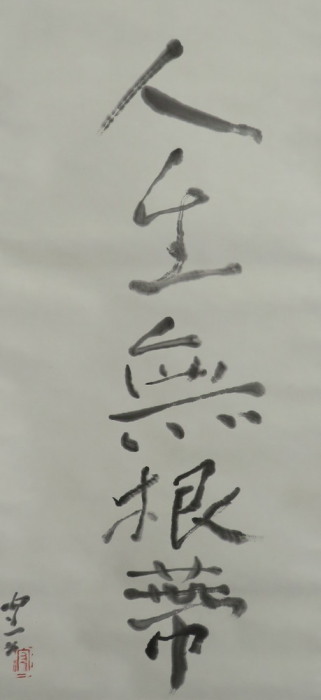 人生無根蒂